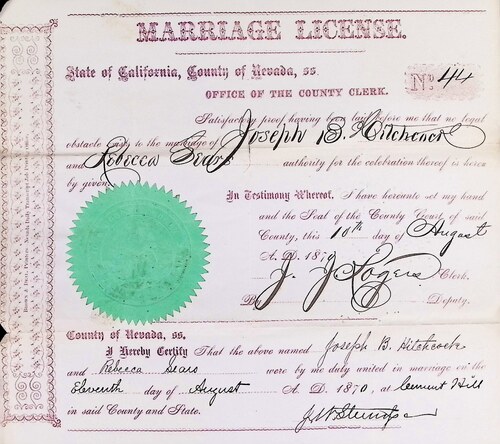 MARRIAGE LICENSE.
State of California, County of Nevada, ss.
No 44
OFFICE OF THE COUNTY CLERK.
Satisfactory proof having been laid before me that no legal
obstacle exists to the marriage of Joseph B. Hitchcock
and Rebecca Sears authority for the celebration thereof is hereby given.
In Testimony Whereof, I have hereunto set my hand
and the Seal of the County Court of said
County, this 10th day of August
A. D. 1870
J. J. Rogers Clerk.
By Deputy.
County of Nevada, ss.
I Hereby Certify That the above named Joseph B. Hitchcock
and Rebecca Sears were by me duly united in marriage on the
Eleventh day of August A. D. 1870, at Cement Hill
in said County and State.